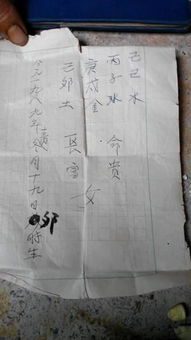 己巳 水
丙子水 命貴
庚戌金 女
己卯 土 長
公元一九八九年 月十九日卯时生